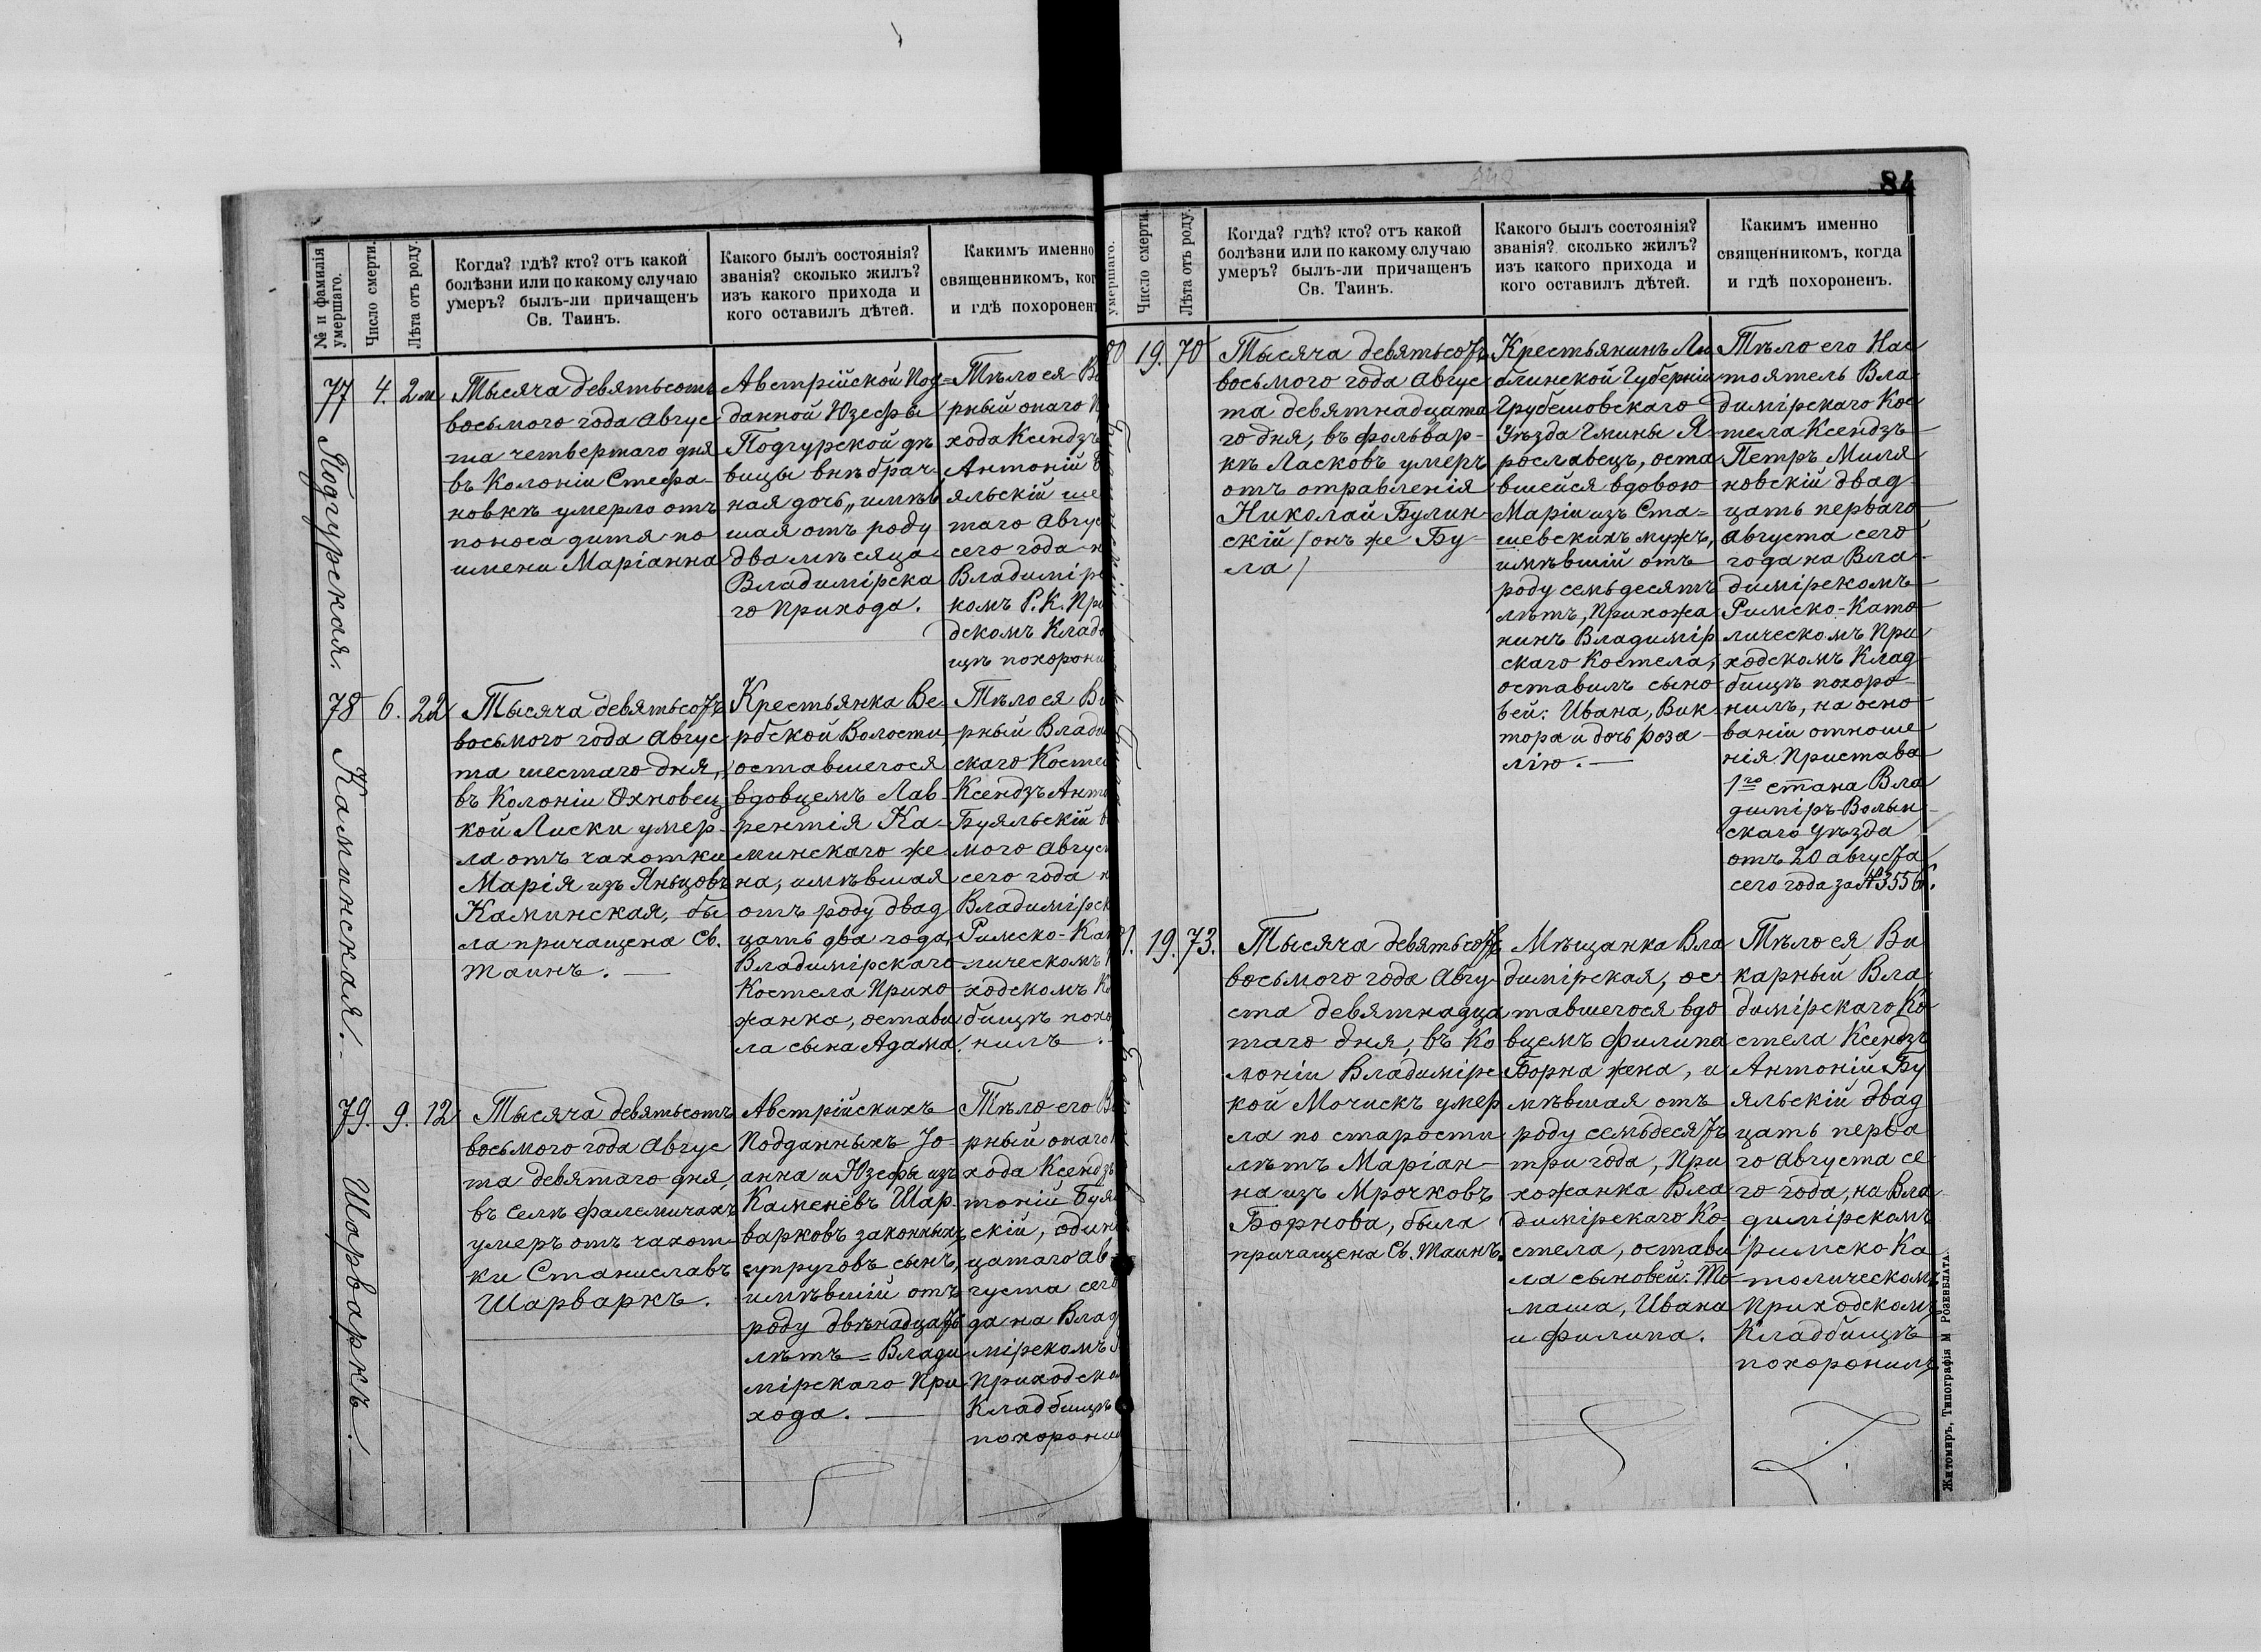 84
№ и фамилія умершаго.
Число смерти.
Лѣта отъ роду.
Когда? гдѣ? кто? отъ какой
болѣзни или по какому случаю
умеръ? былъ-ли причащенъ
Св. Таинъ.
Какого былъ состоянія?
званія? сколько жилъ?
изъ какого прихода и
кого оставилъ дѣтей.
Каким​ъ именно
священникомъ, ког
и гдѣ похоронен
77
Подгурская.
4.
2 м
Тысяча девятьсотъ
восьмого года Авгус
та четвертаго дня
въ Колоніи Стефа-
новкѣ умерло отъ
поноса дитя по
имени Маріанна
Австрійской Под=
данной Юзефы
Подгурской дѣ
вицы внѣбрач-
ная дочь, имѣв
шая отъ роду
два мѣсяца
Владимірска
го Прихода.
Тѣло ея В
рный онаго П
хода Ксендзъ
Антоній Б
яльскій ше
таго Авгус
сего года н
Владимірс
комъ Р. К. При
дскомъ Кладб
щѣ похорони
78
Каминская.
6.
22
Тысяча девятьсотъ
восьмого года Авгус
та шестаго дня,
въ Колоніи Охновец
кой Лиски умер-
ла отъ чахотки
Марія изъ Яньцовъ
Каминская, бы
ла причащена Св.
Таинъ.
Крестьянка Ве
рбской Волости,
оставшегося
вдовцемъ Лав-
рентія Ка-
минскаго же
на, имѣвшая
отъ роду двад
цать два года,
Владимірскаго
Костела Прихо
жанка, остави
ла сына Адама.
Тѣло ея Ви
рный Влади
скаго Косте
Ксендзъ Анто
Буяльскій в
мого Авгус
сего года н
Владимірск
Римско-Ка
лическомъ
ходскомъ К
бищѣ похо
нилъ.
79.
Шарваркъ.
9.
12
Тысяча девятьсотъ
восьмого года Авгус
та девятаго дня,
въ селѣ Фалемичахъ
умеръ отъ чахот-
ки Станиславъ
Шарваркъ.
Австрійскихъ
Подданныхъ Іо-
анна и Юзефы изъ
Каменёвъ Шар-
варковъ законныхъ
супруговъ сынъ,
имѣвшій отъ
роду двѣнадцать
лѣтъ = Влади
мірскаго При
хода.
Тѣло его В
рный онаго
хода Ксендзъ
тоній Буя
скій, один
цатаго Ав-
густа сег
да на Влад
мірскомъ
Приходско
Кладбищѣ
похорони
умершаго.
Число смерти.
Лѣта отъ роду.
Когда? гдѣ? кто? отъ какой
болѣзни или по какому случаю
умеръ? былъ-ли причащенъ
Св. Таинъ.
Какого былъ состоянія?
званія? сколько жилъ?
изъ какого прихода и
кого оставилъ дѣтей.
Какимъ именно
священникомъ, когда
и гдѣ похороненъ.
80
19.
70
Тысяча девятьсотъ
восьмого года Авгус
та девятнадцата
го дня, въ фольвар-
кѣ Ласковъ умеръ
отъ отравленія
Николай Булин-
скій /онъ же Бу-
ла/
Крестьянинъ Лю
блинской Губерніи
Грубешовскаго
Уѣзда Гмины Я-
рославецъ, оста
вшейся вдовою
Маріи изъ Ста=
шевскихъ мужъ,
имѣвшій отъ
роду семьдесятъ
лѣтъ, Прихожа
нинъ Владимір
скаго Костела,
оставилъ сыно
вей: Ивана, Вик
тора и дочь Роза-
лію.
Тѣло его Нас
тоятель Вла-
димірскаго Кос
тела Ксендзъ
Петръ Миля
новскій двад-
цать перваго
Августа сего
года на Вла-
димірскомъ
Римско-Като
лическомъ При
ходскомъ Клад
бищѣ похоро-
нилъ, на осно
ваніи отноше
нія Пристава
1го стана Вла
диміръ-Волын-
скаго Уѣзда
отъ 20 августа
сего года за № 3556.
1.
19.
73.
Тысяча девятьсотъ
восьмого года Авгу-
ста девятнадца
таго дня, въ Ко
лоніи Владимірс
кой Мочискѣ умер
ла по старости
лѣтъ Маріан-
на изъ Мрочковъ
Борнова, была
причащена Св. Таинъ.
Мѣщанка Вла
димірская, ос-
тавшегося вдо
вцемъ Филипа
Борна жена, и
мѣвшая отъ
роду семьдесятъ
три года, При
хожанка Вла
димірскаго Ко-
стела, остави
ла сыновей: То-
маша, Ивана
и Филипа.
Тѣло ея, Ви
карный Вла
димірскаго Ко
стела Ксендзъ
Антоній Бу
яльскій двад
цать перва
го Августа се
го года, на Вла
димірскомъ
римско Ка
толическомъ
Приходскомъ
Кладбищѣ
похоронилъ
Житомиръ, Типографія М РОЗЕНБЛАТА.